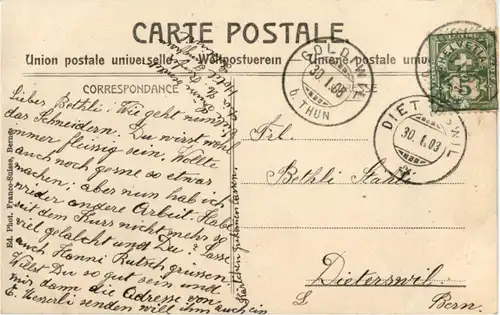 CARTE POSTALE.
Union postale universelle. — Weltpostverein — Unione postale univer
CORRESPONDANCE
Liebes Bethli. Wie geht nun
das Schneidern. Du wirst wohl
immer fleissig sein. Wollte
auch noch gerne so etwas
machen; aber nun hab ich
wider andere Arbeit. Habe
seit dem Kurs nicht mehr so
viel gelacht und Du? Lasse
auch Hanni Rutsch grüssen.
Willst Du so gut sein und
mir dann die Adresse von
E. senden will ihm auch ein
Kärtchen zukommen lassen.
Ed. Phot. Franco-Suisse, Berne
GOLDWIL
30. I. 03
b. THUN
HELVETIA
5
DIETERSWIL
30. I. 03
Frl.
Bethli Stähli
Dieterswil
Bern.